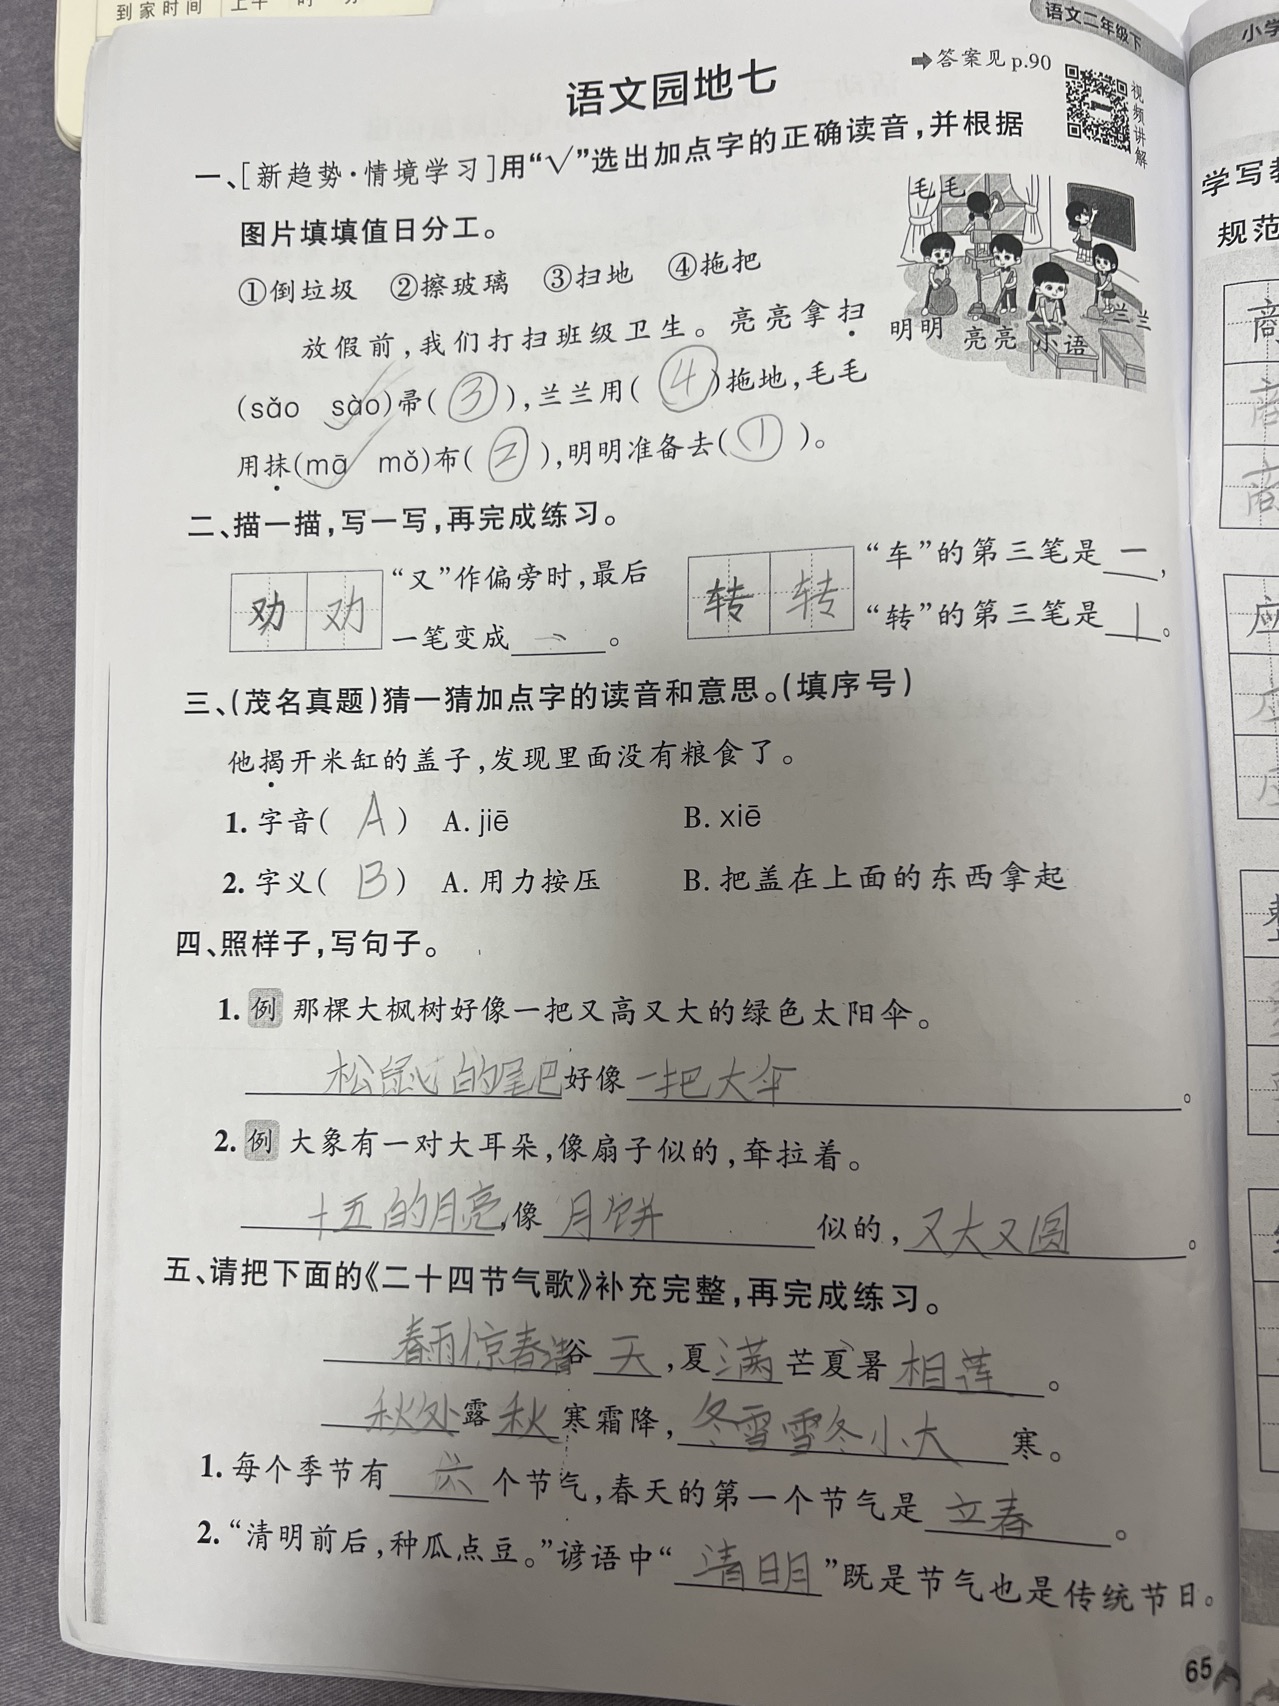 到家时间 上午 时 分
语文二年级下
小学
语文园地七
➡答案见p.90
视频讲解
一、[新趋势·情境学习]用“√”选出加点字的正确读音，并根据
图片填填值日分工。
①倒垃圾 ②擦玻璃 ③扫地 ④拖把
毛毛
明明 亮亮 小语 兰兰
放假前，我们打扫班级卫生。亮亮拿扫
(sǎo sào√)帚(③)，兰兰用(④)拖地，毛毛
用抹(mā√ mǒ)布(②)，明明准备去(①)。
二、描一描，写一写，再完成练习。
劝 劝 “又”作偏旁时，最后
一笔变成丶。
转 转 “车”的第三笔是一，
“转”的第三笔是丨。
三、(茂名真题)猜一猜加点字的读音和意思。(填序号)
他揭开米缸的盖子，发现里面没有粮食了。
1. 字音( A ) A. jiē B. xiē
2. 字义( B ) A. 用力按压 B. 把盖在上面的东西拿起
四、照样子，写句子。
1. 例 那棵大枫树好像一把又高又大的绿色太阳伞。
松鼠的尾巴好像一把大伞。
2. 例 大象有一对大耳朵，像扇子似的，耷拉着。
十五的月亮，像月饼似的，又大又圆。
五、请把下面的《二十四节气歌》补充完整，再完成练习。
春雨惊春清谷天，夏满芒夏暑相莲。
秋处露秋寒霜降，冬雪雪冬小大寒。
1. 每个季节有六个节气，春天的第一个节气是立春。
2. “清明前后，种瓜点豆。”谚语中“清明”既是节气也是传统节日。
65
学写
规范
商
商
商